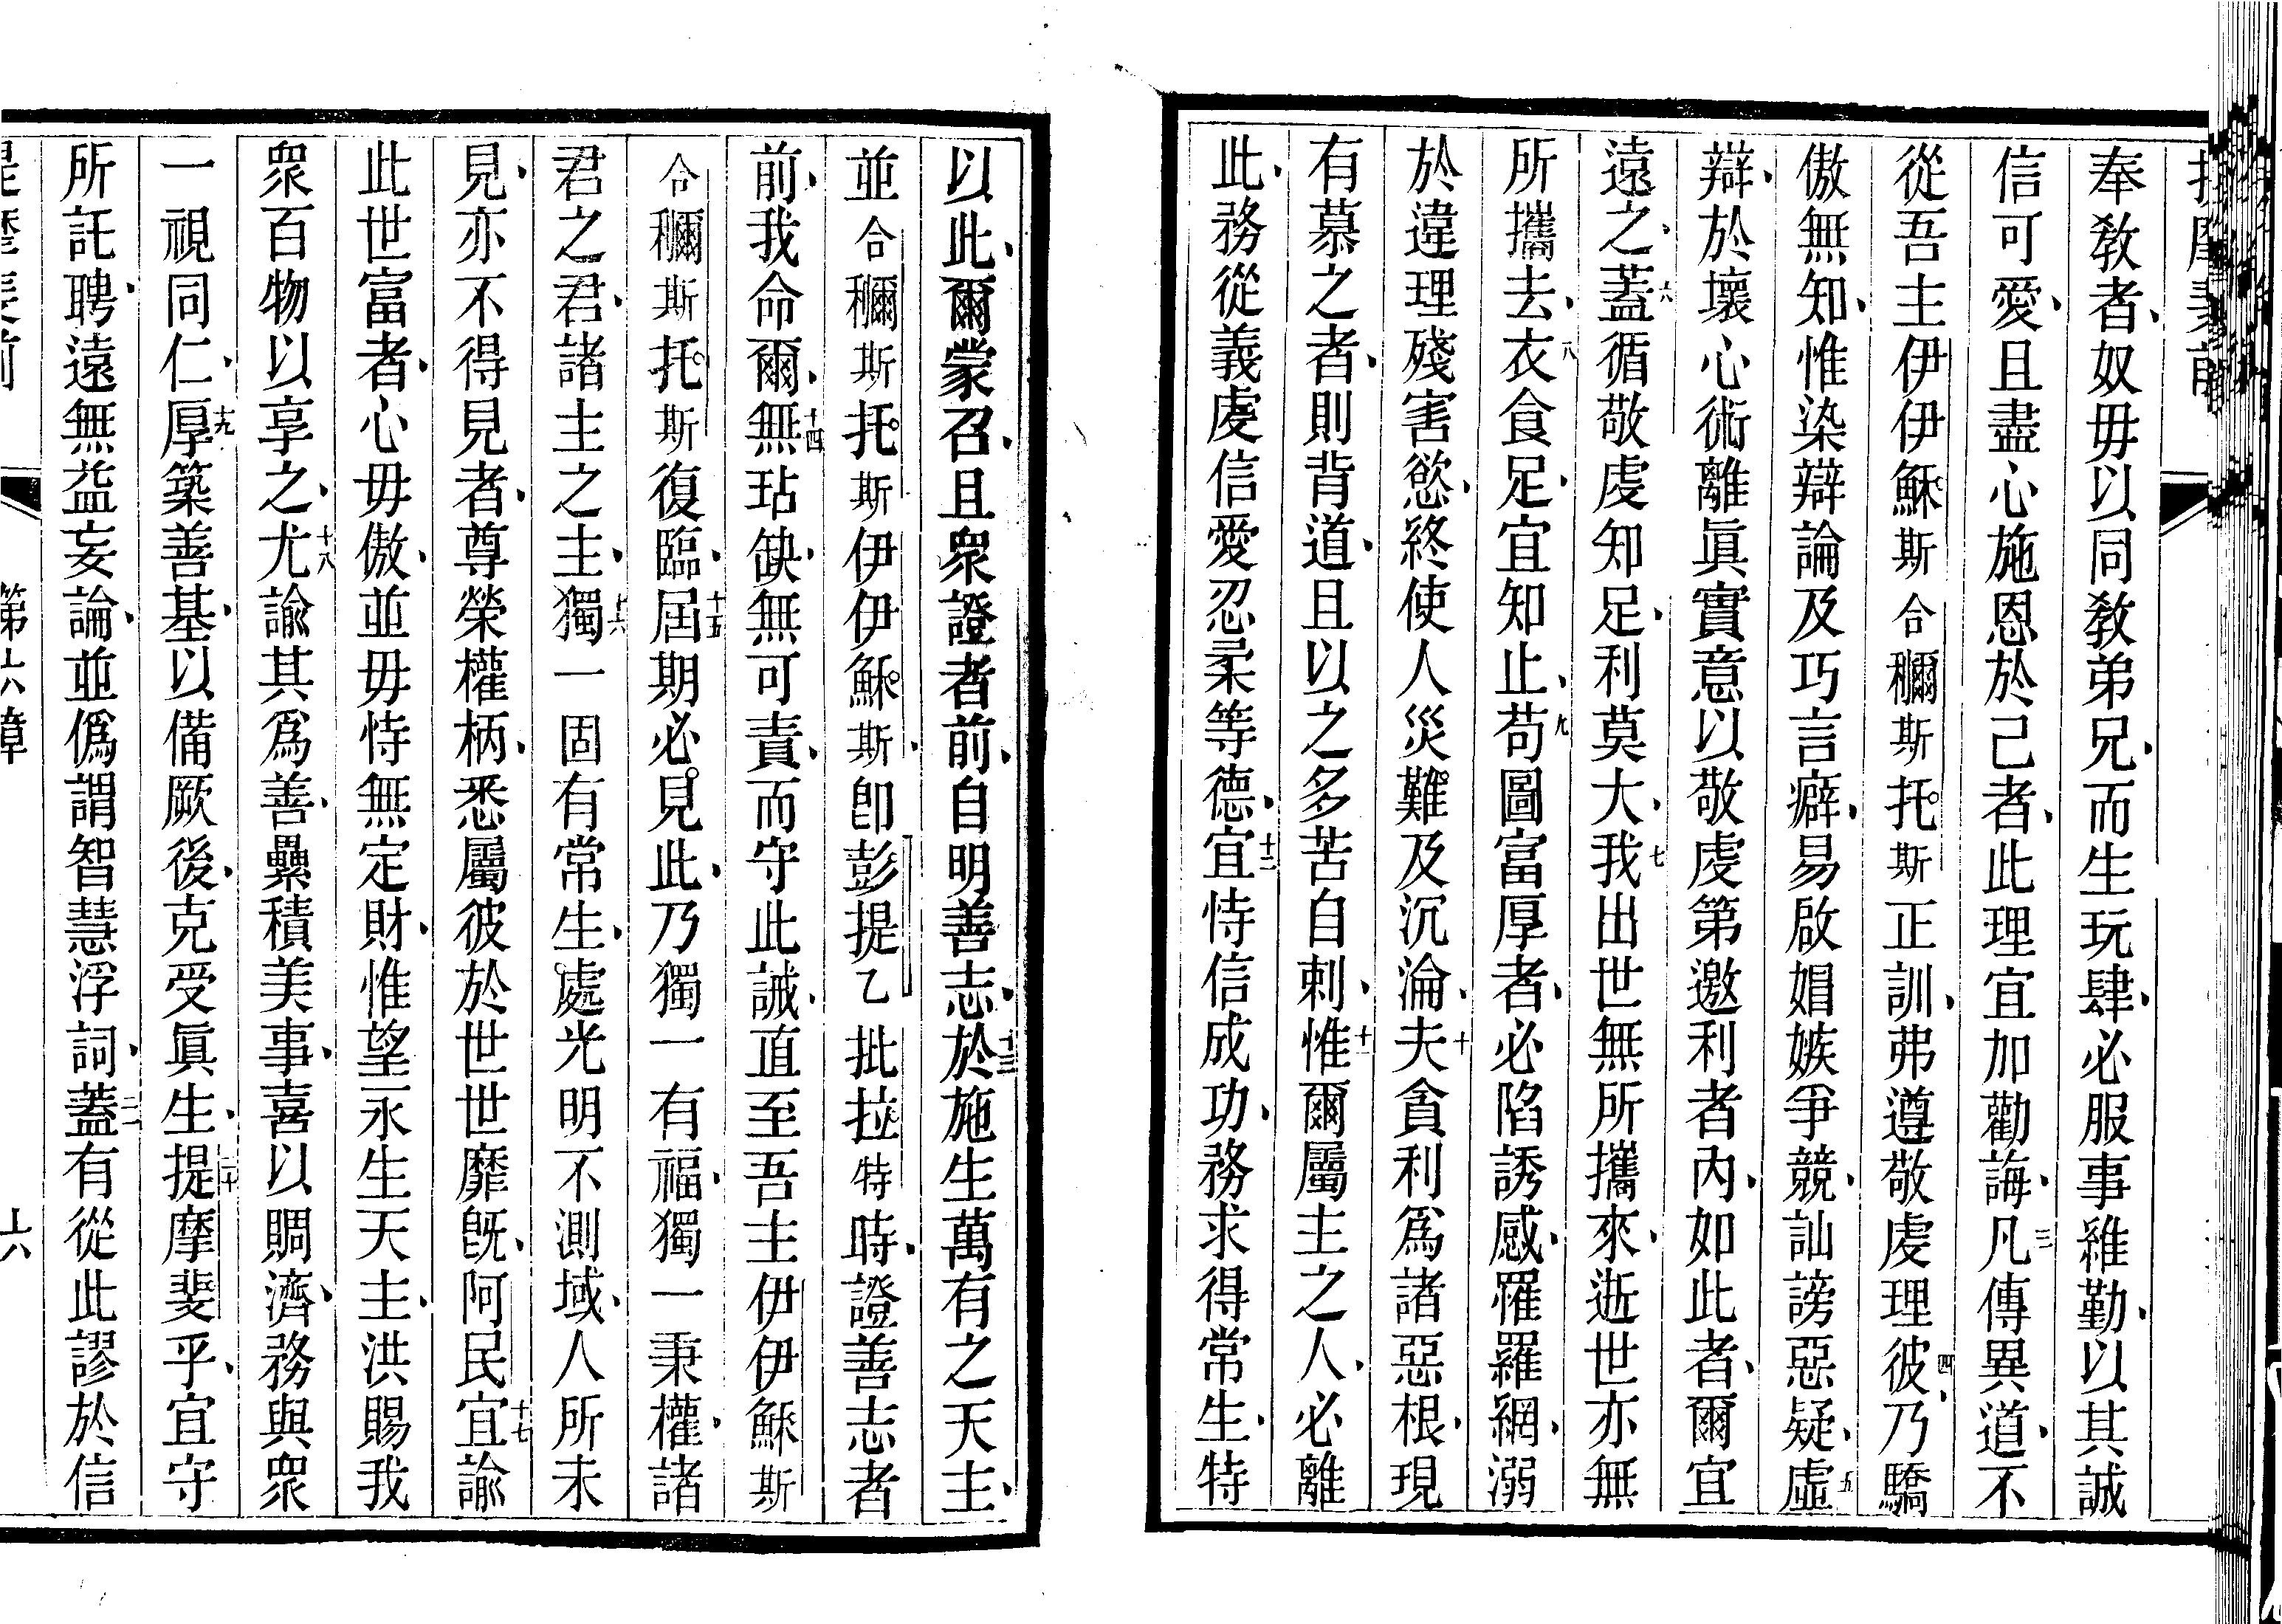 奉敎者、奴毋以同敎弟兄、而生玩肆、必服事維勤、以其誠
信可愛、且盡心施恩於己者、此理宜加勸誨、三凡傳異道、不
從吾主伊伊穌斯合穪斯托斯正訓、弗遵敬虔理、四彼乃驕
傲無知、惟染辯論及巧言癖、易啟媢嫉爭競、訕謗惡疑、五虛
辯、於壞心術離眞實意以敬虔第邀利者內、如此者、爾宜
遠之、六蓋循敬虔知足、利莫大、七我出世無所攜來、逝世亦無
所攜去、八衣食足、宜知止、九苟圖富厚者、必陷誘惑、罹羅網、溺
於違理殘害慾、終使人災難及沉淪、十夫貪利爲諸惡根、現
有慕之者、則背道、且以之多苦自刺、十一惟爾屬主之人、必離
此、務從義虔信愛忍柔等德、十二宜恃信成功、務求得常生、特
以此、爾蒙召、且衆證者前、自明善志、十三於施生萬有之天主、
並合穪斯托斯伊伊穌斯、卽彭提乙批拉特時、證善志者
前、我命爾、十四無玷缺、無可責、而守此誡、直至吾主伊伊穌斯
合穪斯托斯復臨、十五屆期必見此、乃獨一有福、獨一秉權、諸
君之君、諸主之主、十六獨一固有常生、處光明不測域、人所未
見、亦不得見者、尊榮權柄、悉屬彼於世世靡旣、阿民、十七宜諭
此世富者、心毋傲、並毋恃無定財、惟望永生天主、洪賜我
衆百物以享之、十八尤諭其爲善、纍積美事、喜以賙濟、務與衆
一視同仁、十九厚築善基、以備厥後、克受眞生、二十提摩斐乎、宜守
所託、聘遠無益妄論、並僞謂智慧浮詞、二一蓋有從此謬於信
第六章
六